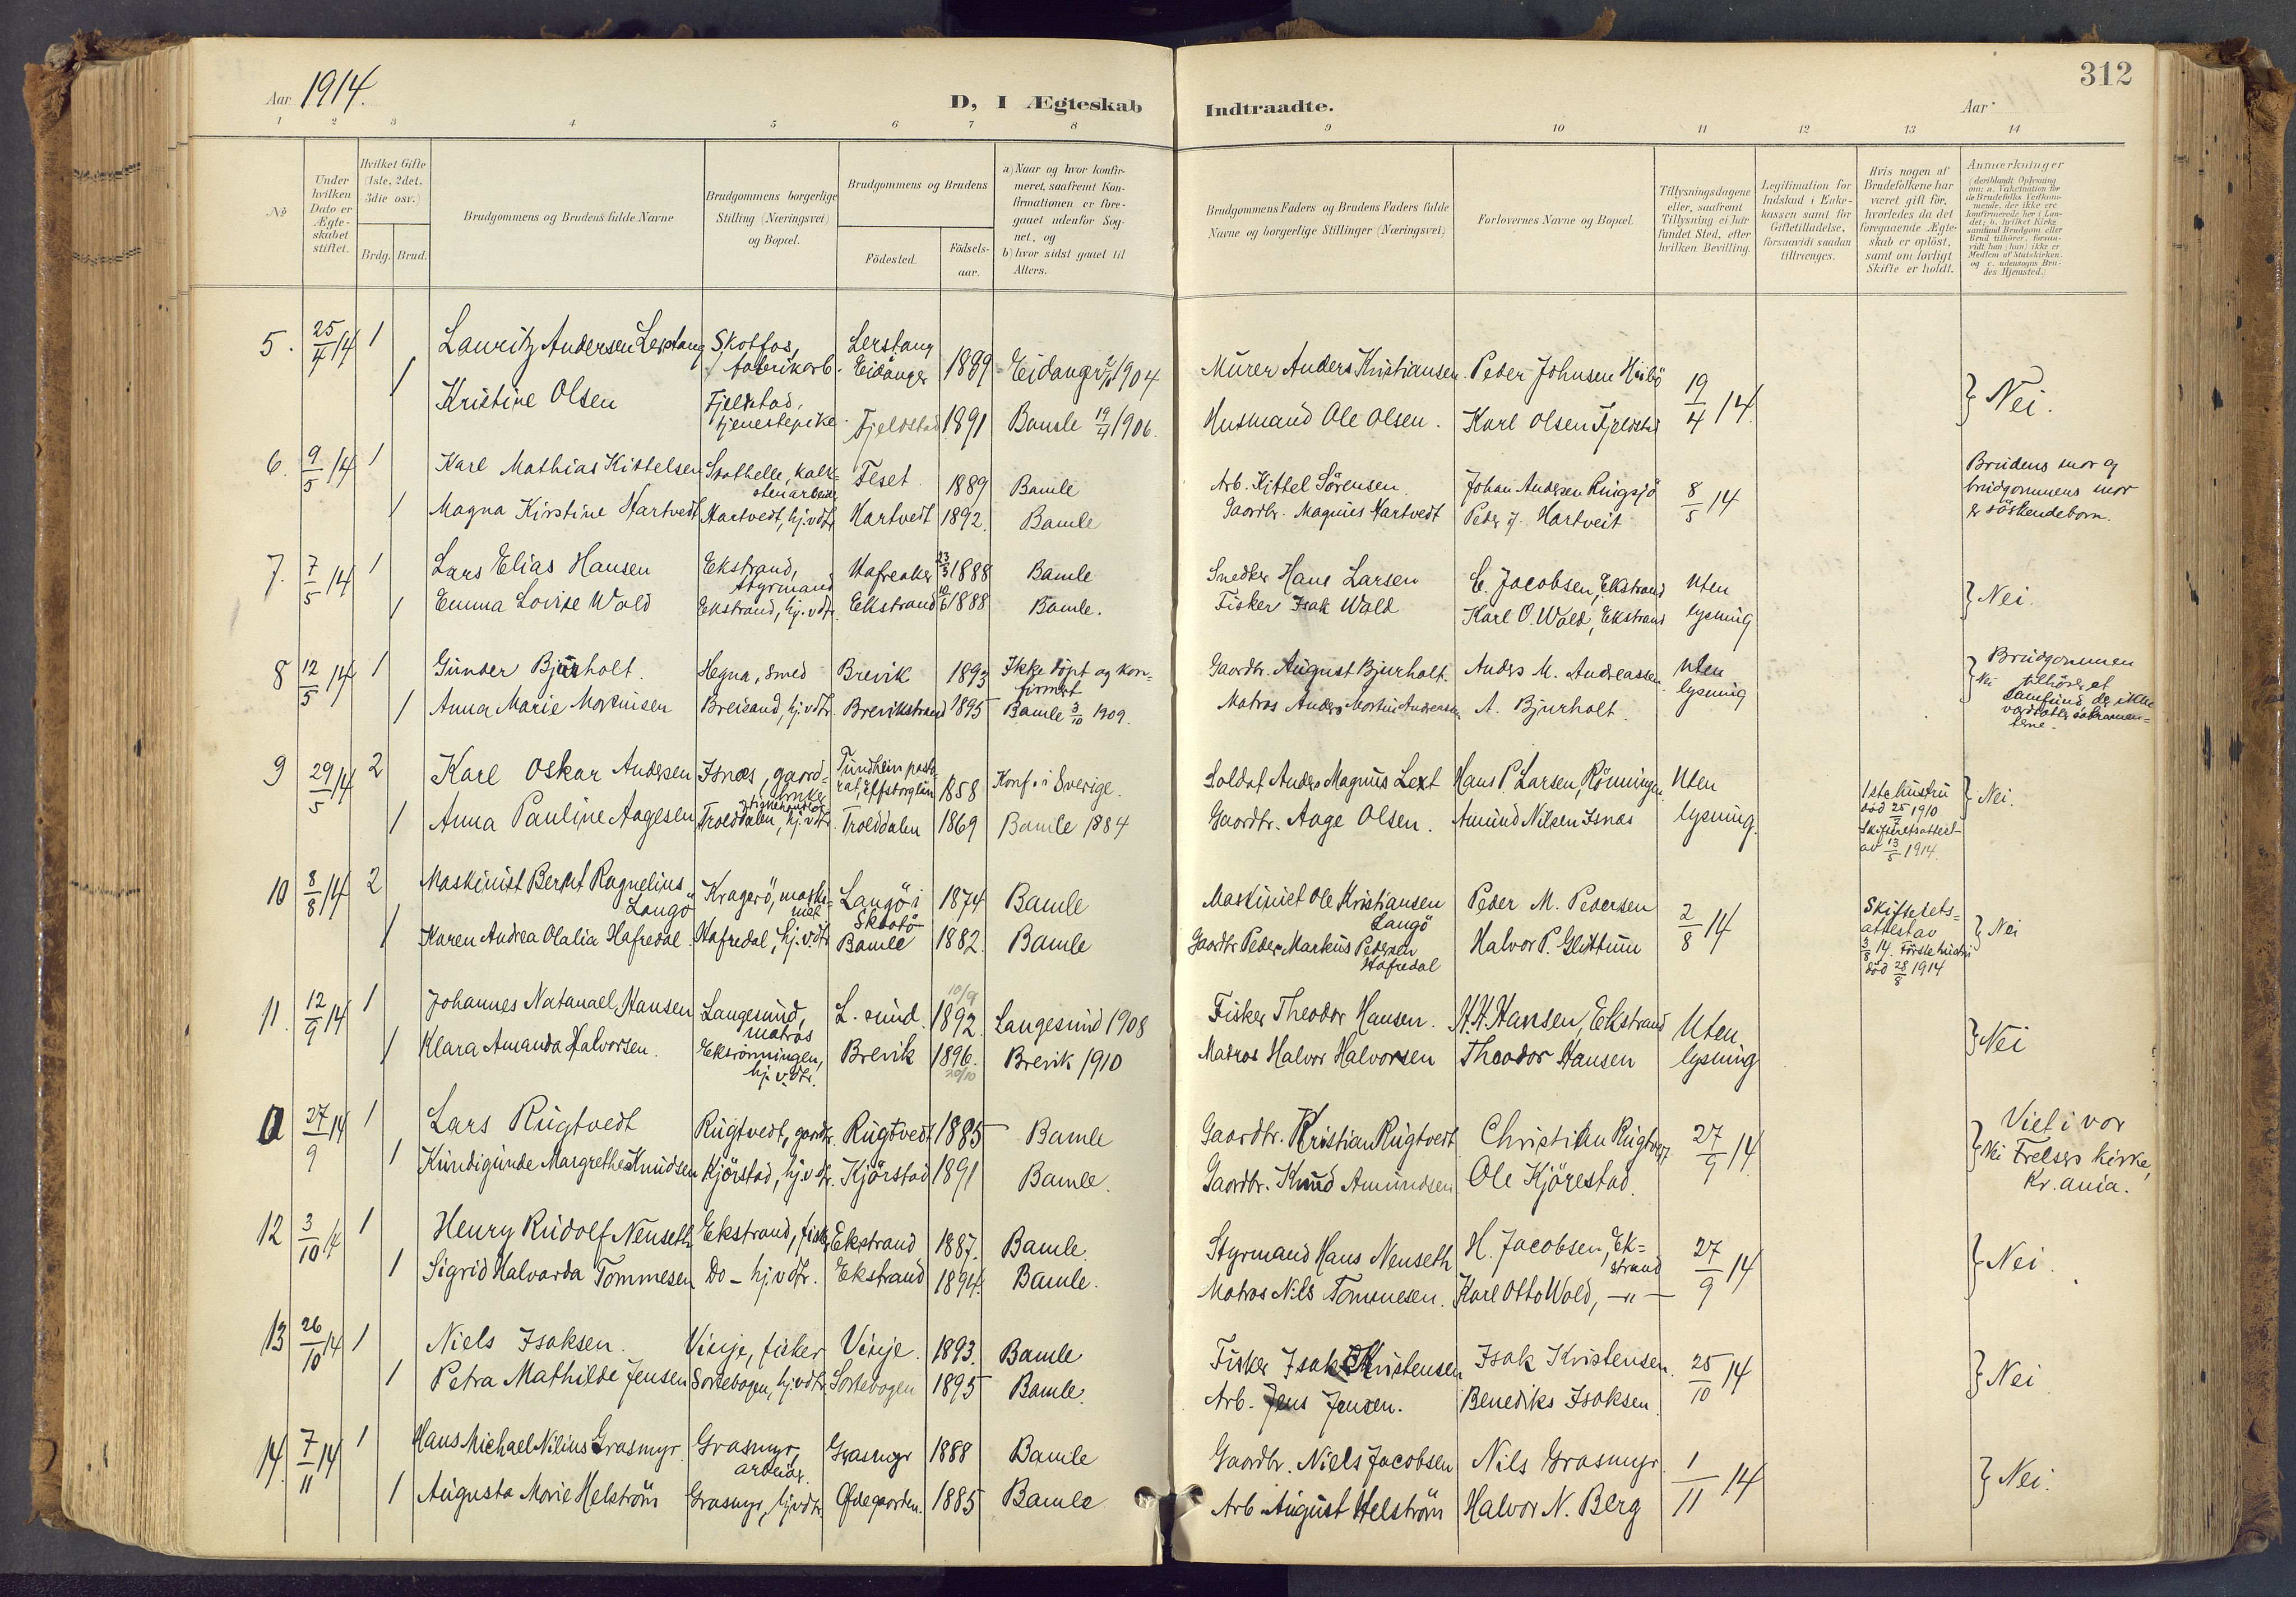 Aar 1914.
D, I Ægteskab
Indtraadte.
Aar
312
1 2 3 4 5 6 7 8 9 10 11 12 13 14
No
Under hvilken Dato er Ægteskabet stiftet.
Hvilket Gifte (1ste, 2det, 3die osv.)
Brdg. Brud.
Brudgommens og Brudens fulde Navne
Brudgommens borgerlige Stilling (Næringsvei) og Bopæl.
Brudgommens og Brudens
Födested.
Födsels-aar.
a) Naar og hvor konfirmeret, saafremt Konfirmationen er foregaaet udenfor Sognet, og
b) hvor sidst gaaet til Alters.
Brudgommens Faders og Brudens Faders fulde Navne og borgerlige Stillinger (Næringsvei)
Forlovernes Navne og Bopæl.
Tillysningsdagene eller, saafremt Tillysning ei har fundet Sted, efter hvilken Bevilling.
Legitimation for Indskud i Enkekassen samt for Giftetilladelse, forsaavidt saadan tiltrænges.
Hvis nogen af Brudefolkene har været gift för, hvorledes da det foregaaende Ægteskab er oplöst, samt om lovligt Skifte er holdt.
Anmærkninger
(deriblandt Oplysning om: a. Vakcination for de Brudefolks Vedkommende, der ikke ere konfirmerede her i Landet; b. hvilket Kirkesamfund Brudgom eller Brud tilhörer, forsaavidt han (hun) ikke er Medlem af Statskirken. og c. udensogns Brudes Hjemsted.)
5. 25/4 14 1 Lauritz Andersen Lerstang Skotfos, fabrikarb. Lerstang Eidanger 1889 Eidanger 2/10 1904 Murer Anders Kristiansen. Peder Johnsen Heibö 19/4 14. } Nei.
1 Kristine Olsen Fjelstad, tjenestepike Fjeldstad 1891 Bamle 19/4 1906. Husmand Ole Olsen. Karl Olsen Fjeldstad
6. 9/5 14 1 Karl Mathias Kittelsen Stathelle, kalkstenarbeider Feset 1889 Bamle Arb. Kittel Sörensen. Johan Andersen Ringsjö 8/5 14 Brudens mor og brudgommens mor er söskendebörn.
1 Magna Kirstine Hartvedt Hartvedt, hj.v.dtr. Hartvedt 1892. Bamle Gaardbr. Magnus Hartvedt Peder J. Hartveit
7. 7/5 14 1 Lars Elias Hansen Ekstrand, styrmand Hafreaker 23/3 1888 Bamle Snedker Hans Larsen E. Jacobsen, Ekstrand Uten lysning } Nei.
1 Emma Lovise Wold Ekstrand, hj.v.dtr. Ekstrand 1888 Bamle. Fisker Isak Wold Karl O. Wold, Ekstrand
8 12/5 14 1 Gunder Bjurholt. Hegna, smed Brevik 1893 Ikke döpt og konfirmert Gaardbr. August Bjurholt. Anders M. Andreassen. Uten lysning } Nei Brudgommen tilhörer et samfund, der ikke vedtatter sakramenterne.
1 Anna Marie Mortinsen Breisand, hj.v.dtr. Brevikstrand 1895 Bamle 3/10 1909. Matros Anders Mortin Andersen A. Bjurholt.
9 29/5 14 2 Karl Oskar Andersen Isnæs, gaardbruker Tundhem pastorat, Elfsborg län 1858 Konf. i Sverige. Soldat Anders Magnus Lext Hans P. Larsen, Rönningen. Uten lysning. 1ste hustru död 25/7 1910 Skifteretsattest av 13/5 1914. } Nei.
1 Anna Pauline Aagesen Trolddalen, hj.v.dtr. Trolddalen 1869 Bamle 1884 Gaardbr. Aage Olsen. Amund Nilsen Isnæs
10 8/8 14 2 Maskinist Bernt Ragnelius Langö Kragerö, maskinist Langö i Skaatö 1874 Bamle Maskinist Ole Kristiansen Langö Peder M. Pedersen 2/8 14 Skifteretsattest av 3/8 14. Förste hustru död 28/8 1914 } Nei
1 Karen Andrea Olalia Hafredal Hafredal, hj.v.dtr. Bamle 1882. Bamle Gaardbr Peder Markus Pedersen Hafredal Halvor P. Glittum
11. 12/9 14 1 Johannes Natanael Hansen Langesund, matros L. sund. 10/9 1892. Langesund 1908 Fisker Theodor Hansen. H. H. Hansen, Ekstrand Uten lysning } Nei
1 Klara Amanda Halvorsen. Ekrönningen, hj.v.dtr. Brevik 1896. 20/10 Brevik 1910 Matros Halvor Halvorsen Theodor Hansen
0 27/9 14 1 Lars Rugtvedt Rugtvedt, gaardbr. Rugtvedt 1885 Bamle Gaardbr. Kristian Rugtvedt. Christian Rugtvedt 27/9 14 } Nei Viet i vor Frelsers kirke, Kr.ania.
1 Kundigunde Margrethe Knudsen Kjörstad, hj.v.dtr. Kjörstad 1891 Bamle. Gaardbr. Knud Amundsen Ole Kjörestad.
12 3/10 14 1 Henry Rudolf Neuseth Ekstrand, fisker Ekstrand 1887. Bamle Styrmand Hans Neuseth H. Jacobsen, Ekstrand 27/9 14 } Nei.
1 Sigrid Halvarda Tommesen Do - hj.v.dtr. Ekstrand 1894. Bamle. Matros Nils Tommesen. Karl Otto Wold, -"-
13 26/10 14 1 Niels Isaksen. Vinje, fisker Vinje. 1893. Bamle Fisker Isak Kristensen Isak Kristensen. 25/10 14 } Nei
1 Petra Mathilde Jensen Sortebogen, hj.v.dtr. Sortebogen 1895 Bamle. Arb. Jens Jensen. Benediks Isaksen.
14. 7/11 14 1 Hans Michael Nilius Grasmyr Grasmyr, arbeider. Grasmyr 1888 Bamle Gaardbr. Niels Jacobsen Nils Grasmyr. 1/11 14 } Nei.
1 Augusta Marie Helström Grasmyr, hj.v.dtr. Ödegaarden. 1885 Bamle. Arb August Helström Halvor N. Berg